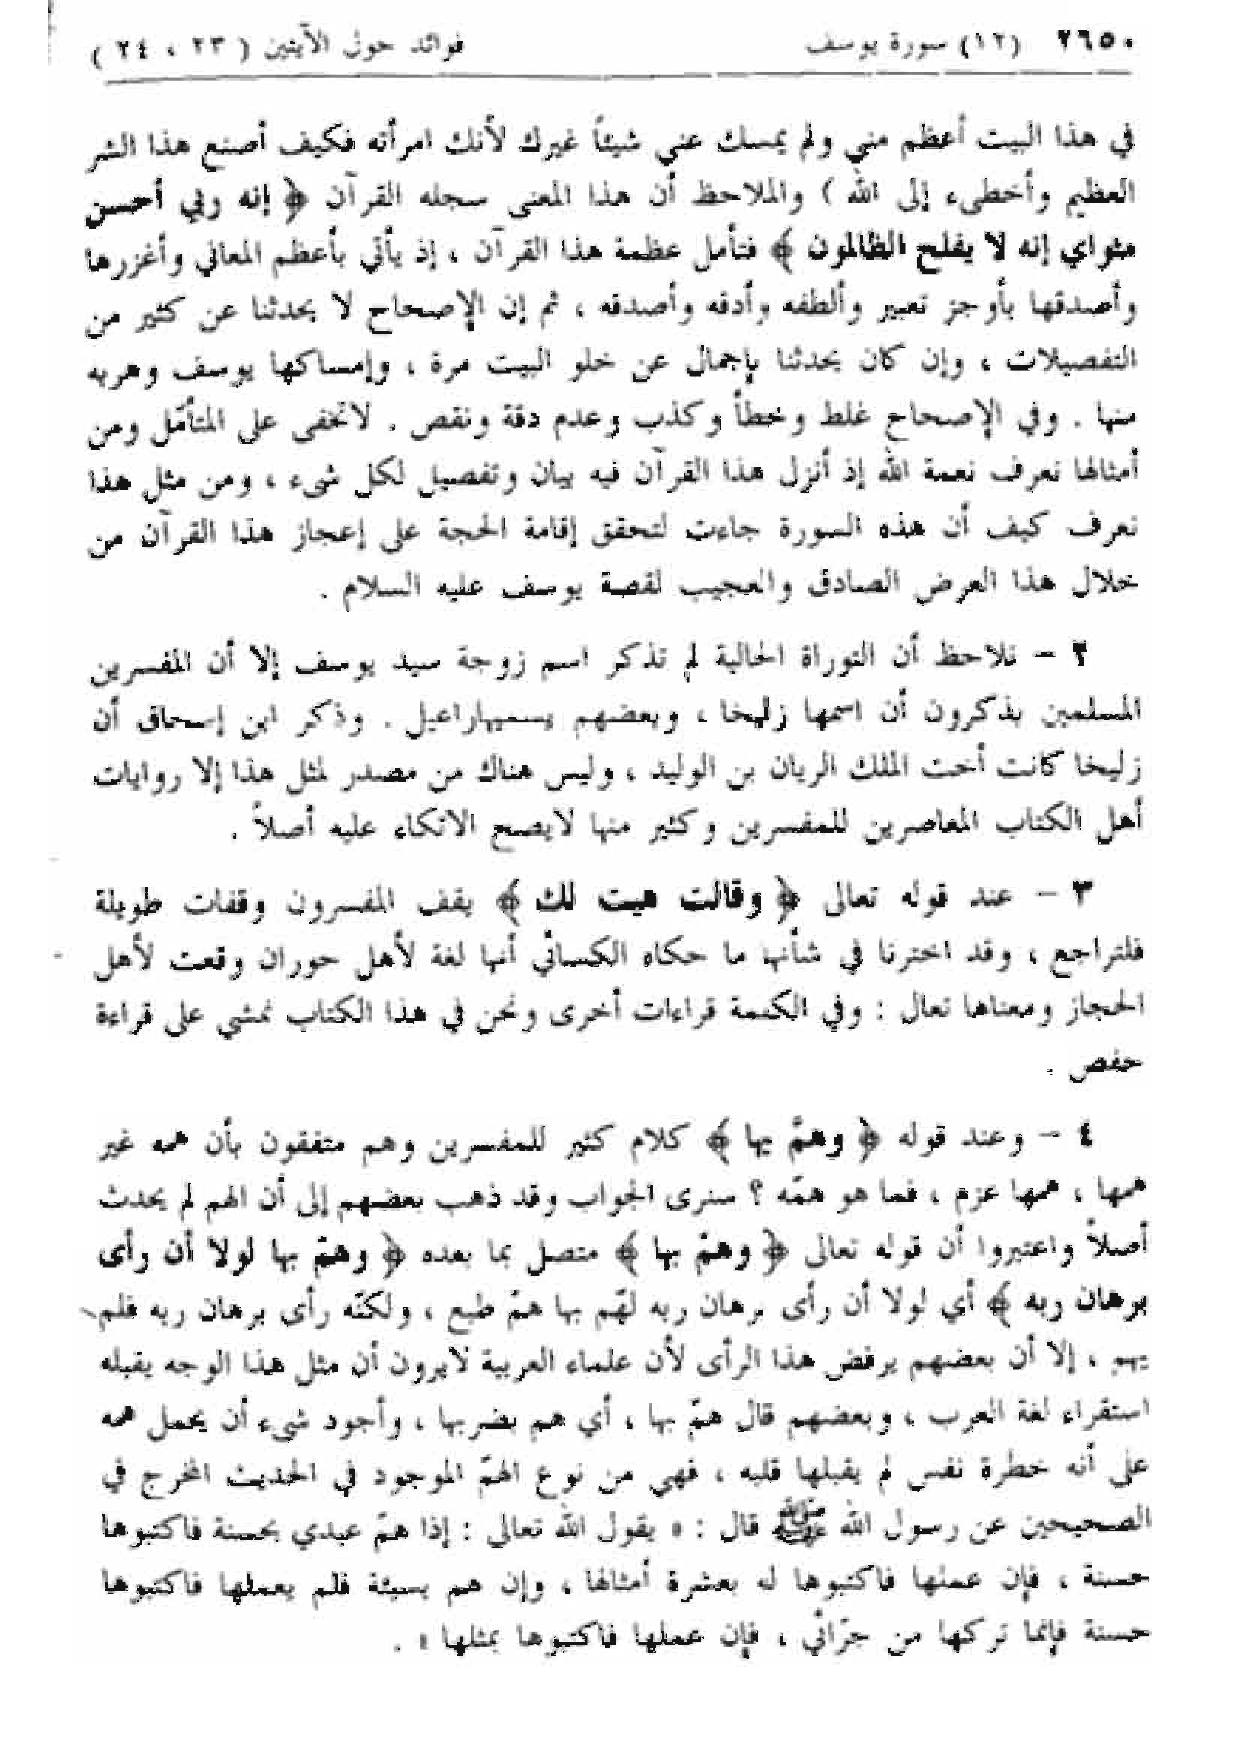 ٢٦٥٠ (١٢) سورة يوسف فوائد حول الآيتين ( ٢٣ ، ٢٤ )
في هذا البيت أعظم مني ولم يمسك عني شيئاً غيرك لأنك امرأته فكيف أصنع هذا الشر
العظيم وأخطىء إلى الله ) والملاحظ أن هذا المعنى سجله القرآن ﴿ إنه ربي أحسن
مثواي إنه لا يفلح الظالمون ﴾ فتأمل عظمة هذا القرآن ، إذ يأتي بأعظم المعاني وأغزرها
وأصدقها بأوجز تعبير وألطفه وأدقه وأصدقه ، ثم إن الإصحاح لا يحدثنا عن كثير من
التفصيلات ، وإن كان يحدثنا بإجمال عن خلو البيت مرة ، وإمساكها يوسف وهربه
منها . وفي الإصحاح غلط وخطأ وكذب وعدم دقة ونقص . لاتخفى على المتأمّل ومن
أمثالها نعرف نعمة الله إذ أنزل هذا القرآن فيه بيان وتفصيل لكل شىء ، ومن مثل هذا
نعرف كيف أن هذه السورة جاءت لتحقق إقامة الحجة على إعجاز هذا القرآن من
خلال هذا العرض الصادق والعجيب لقصة يوسف عليه السلام .
٢ - نلاحظ أن التوراة الحالية لم تذكر اسم زوجة سيد يوسف إلا أن المفسرين
المسلمين يذكرون أن اسمها زليخا ، وبعضهم يسميهاراعيل . وذكر ابن إسحاق أن
زليخا كانت أخت الملك الريان بن الوليد ، وليس هناك من مصدر لمثل هذا إلا روايات
أهل الكتاب المعاصرين للمفسرين وكثير منها لايصح الاتكاء عليه أصلاً .
٣ - عند قوله تعالى ﴿ وقالت هيت لك ﴾ يقف المفسرون وقفات طويلة
فلتراجع ، وقد اخترنا في شأنها ما حكاه الكسائي أنها لغة لأهل حوران وقعت لأهل
الحجاز ومعناها تعال : وفي الكلمة قراءات أخرى ونحن في هذا الكتاب نمشي على قراءة
حفص .
٤ - وعند قوله ﴿ وهمَّ بها ﴾ كلام كثير للمفسرين وهم متفقون بأن همه غير
همها ، همها عزم ، فما هو همّه ؟ سنرى الجواب وقد ذهب بعضهم إلى أن الهم لم يحدث
أصلاً واعتبروا أن قوله تعالى ﴿ وهمّ بها ﴾ متصل بما بعده ﴿ وهمّ بها لولا أن رأى
برهان ربه ﴾ أي لولا أن رأى برهان ربه لهّم بها همّ طبع ، ولكنّه رأى برهان ربه فلم
يهم ، إلا أن بعضهم يرفض هذا الرأى لأن علماء العربية لايرون أن مثل هذا الوجه يقبله
استقراء لغة العرب ، وبعضهم قال همّ بها ، أي هم بضربها ، وأجود شىء أن يحمل همه
على أنه خطرة نفس لم يقبلها قلبه ، فهي من نوع الهمّ الموجود في الحديث المخرج في
الصحيحين عن رسول الله ﷺ قال : « يقول الله تعالى : إذا همّ عبدي بحسنة فاكتبوها
حسنة ، فإن عملها فاكتبوها له بعشرة أمثالها ، وإن هم بسيئة فلم يعملها فاكتبوها
حسنة فإنما تركها من جرّائي ، فإن عملها فاكتبوها بمثلها » .